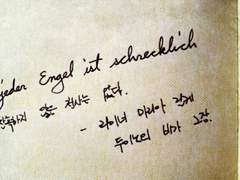 jeder Engel ist schrecklich
않은 천사는 없다.
- 라이너 마리아 릴케
두이노의 비가 中.